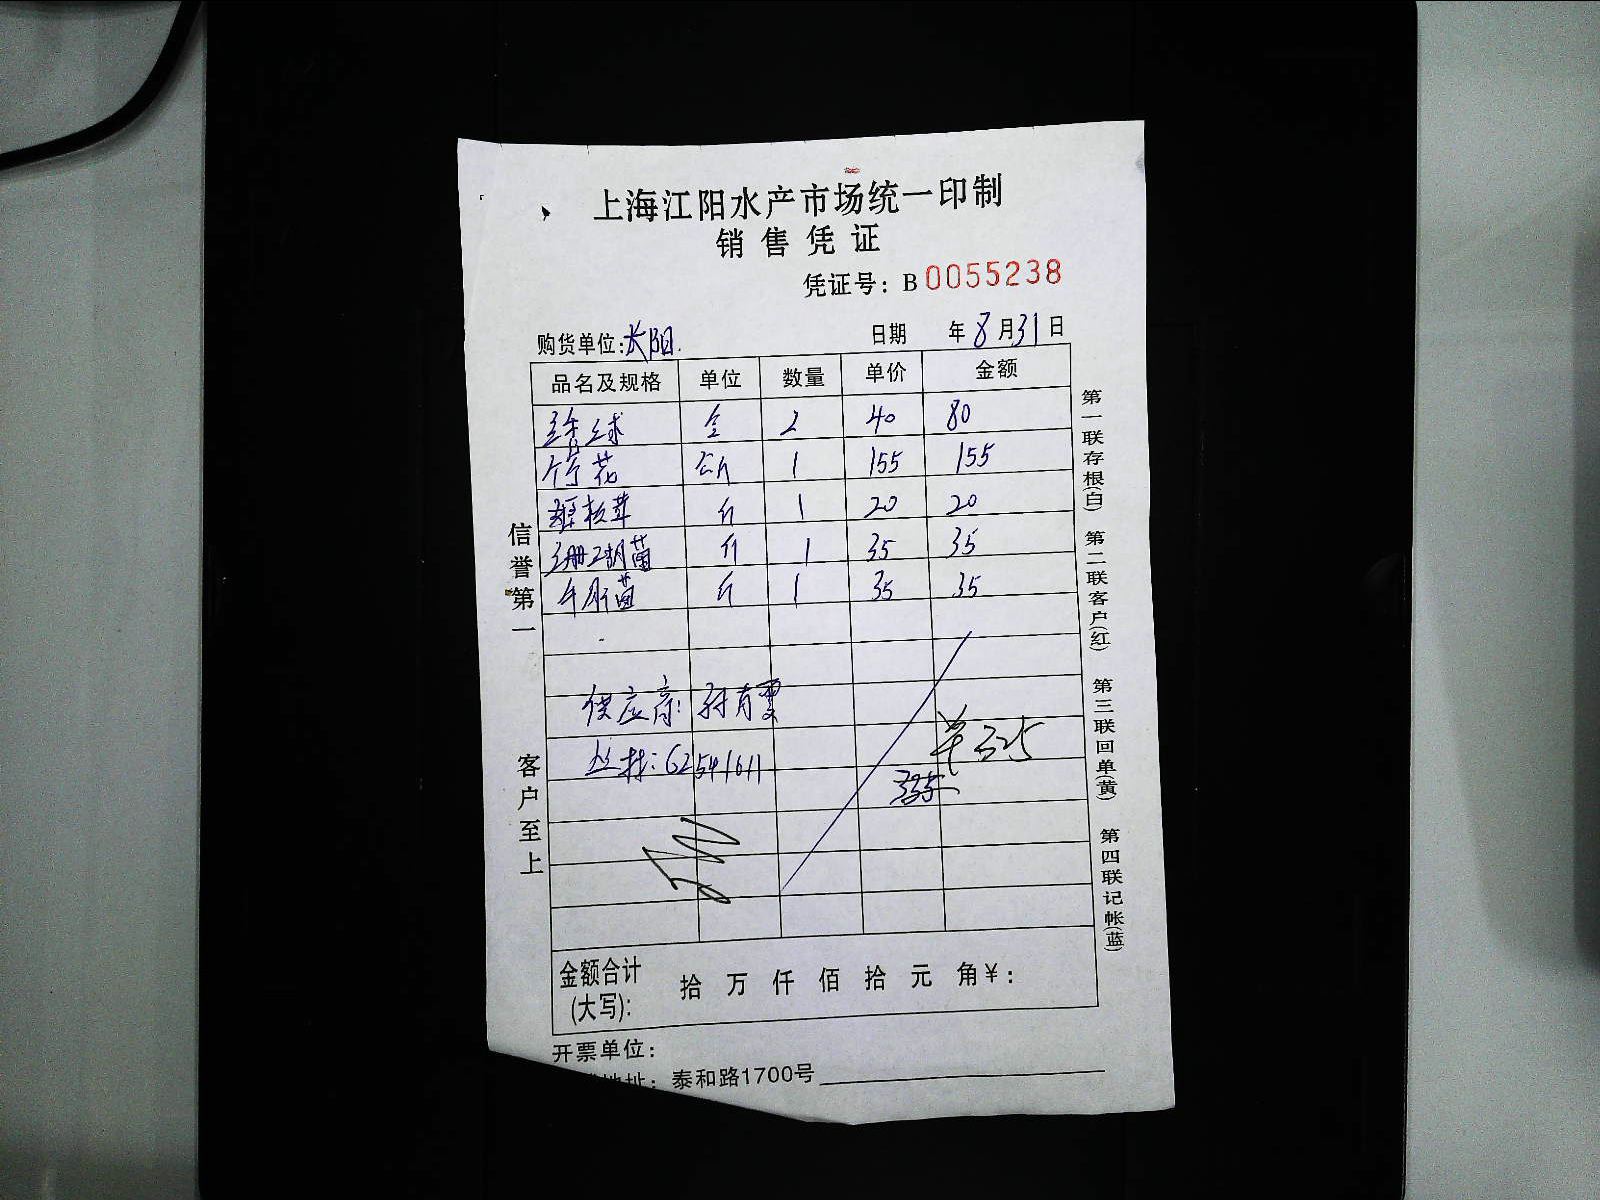 上海江阳水产市场统一印制
销售凭证
凭证号：B 0055238
购货单位:长阳. 日期 年 8月31日
品名及规格 单位 数量 单价 金额
绣球 盒 2 40 80
荷花 公斤 1 155 155
斤 1 20 20
珊瑚菌 斤 1 35 35
牛肝菌 斤 1 35 35
供应商: 孙育雯
丛林: 62541611
单
信誉第一
客户至上
第一联存根(白)
第二联客户(红)
第三联回单(黄)
第四联记帐(蓝)
金额合计(大写): 拾 万 仟 佰 拾 元 角 ¥：
开票单位：
地址：泰和路1700号